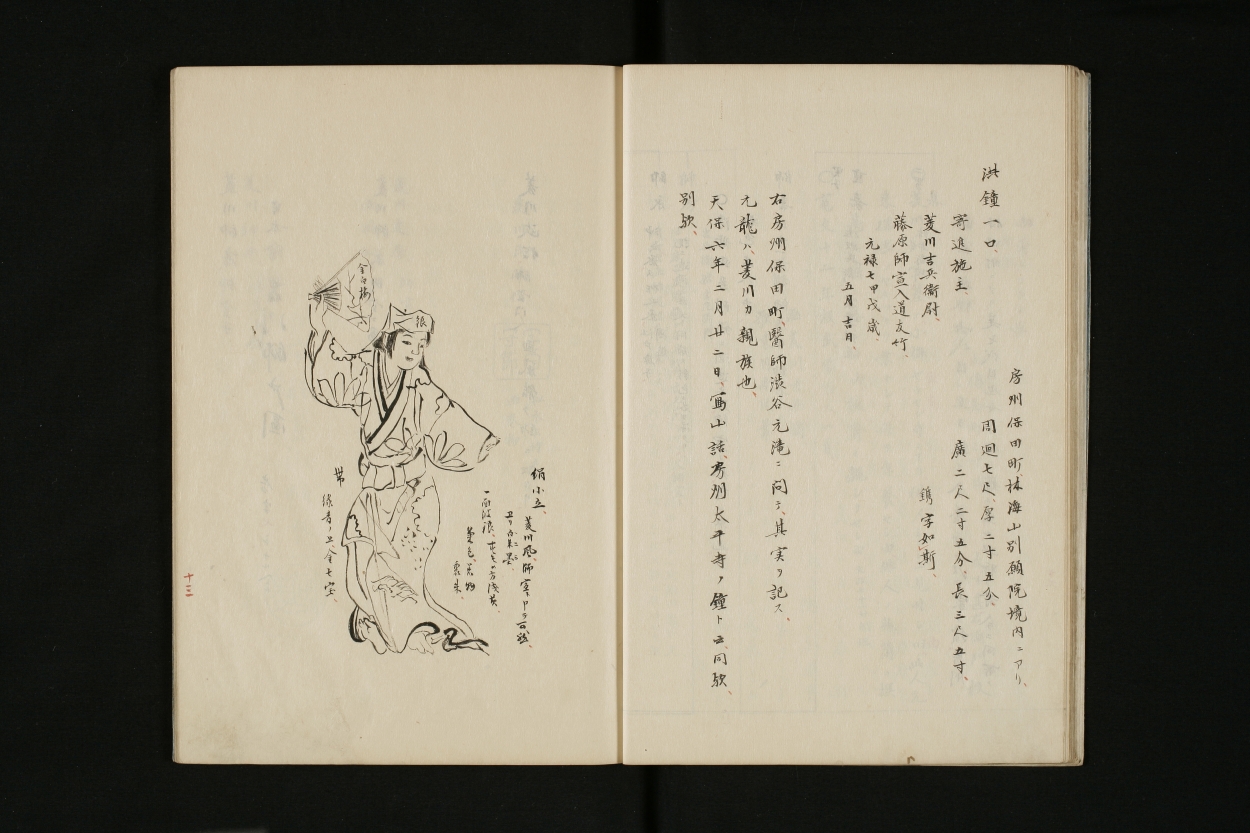 房州保田町、林海山別願院境内ニアリ、
洪鐘一口、
周廻七尺、厚二寸五分、
寄進施主
廣二尺二寸五分、長三尺五寸、
菱川吉兵衞尉、
鐫字如斯、
藤原師宣入道友竹、
元禄七甲戌歳、
五月吉日、
右房州保田町、醫師渋谷元滝ニ問テ、其実ヲ記ス、
元龍ハ、菱川カ親族也、
天保六年二月廿二日、写山話、房州太平寺ノ鐘ト云、同歟、
別歟、
金白梅
銀
絹小立、
菱川風、師宣
一面波浪、
帯
緑青
十三